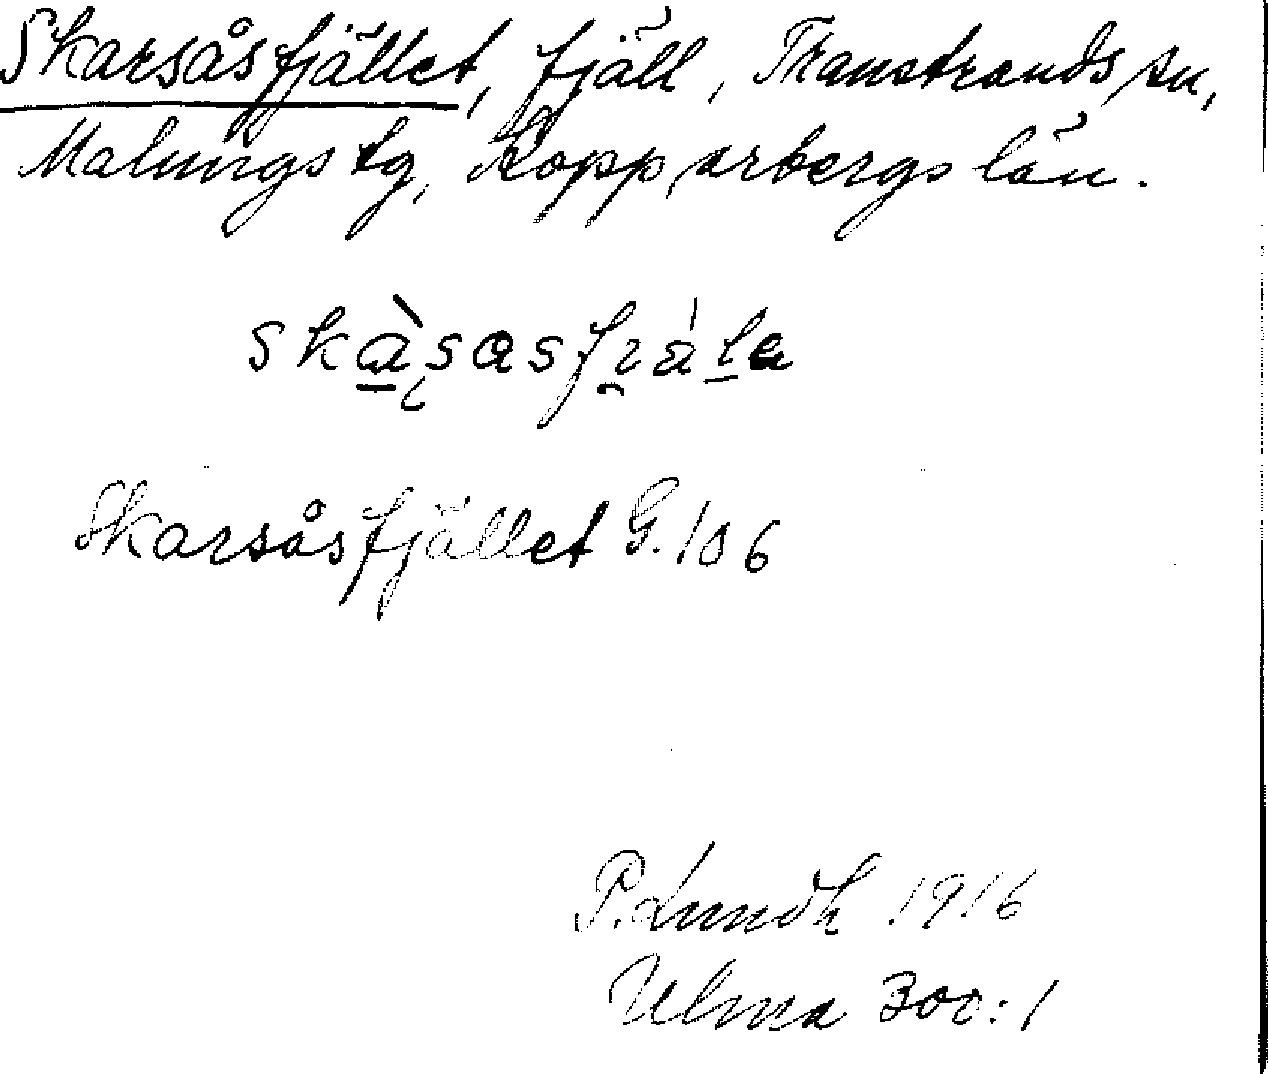 Skarsåsfjället, fjäll, Transtrands sn,
Malungs tg, Kopparbergs län.
Skarsåsfjället G. 106
P. Lundh 1916
Ulma 300:1